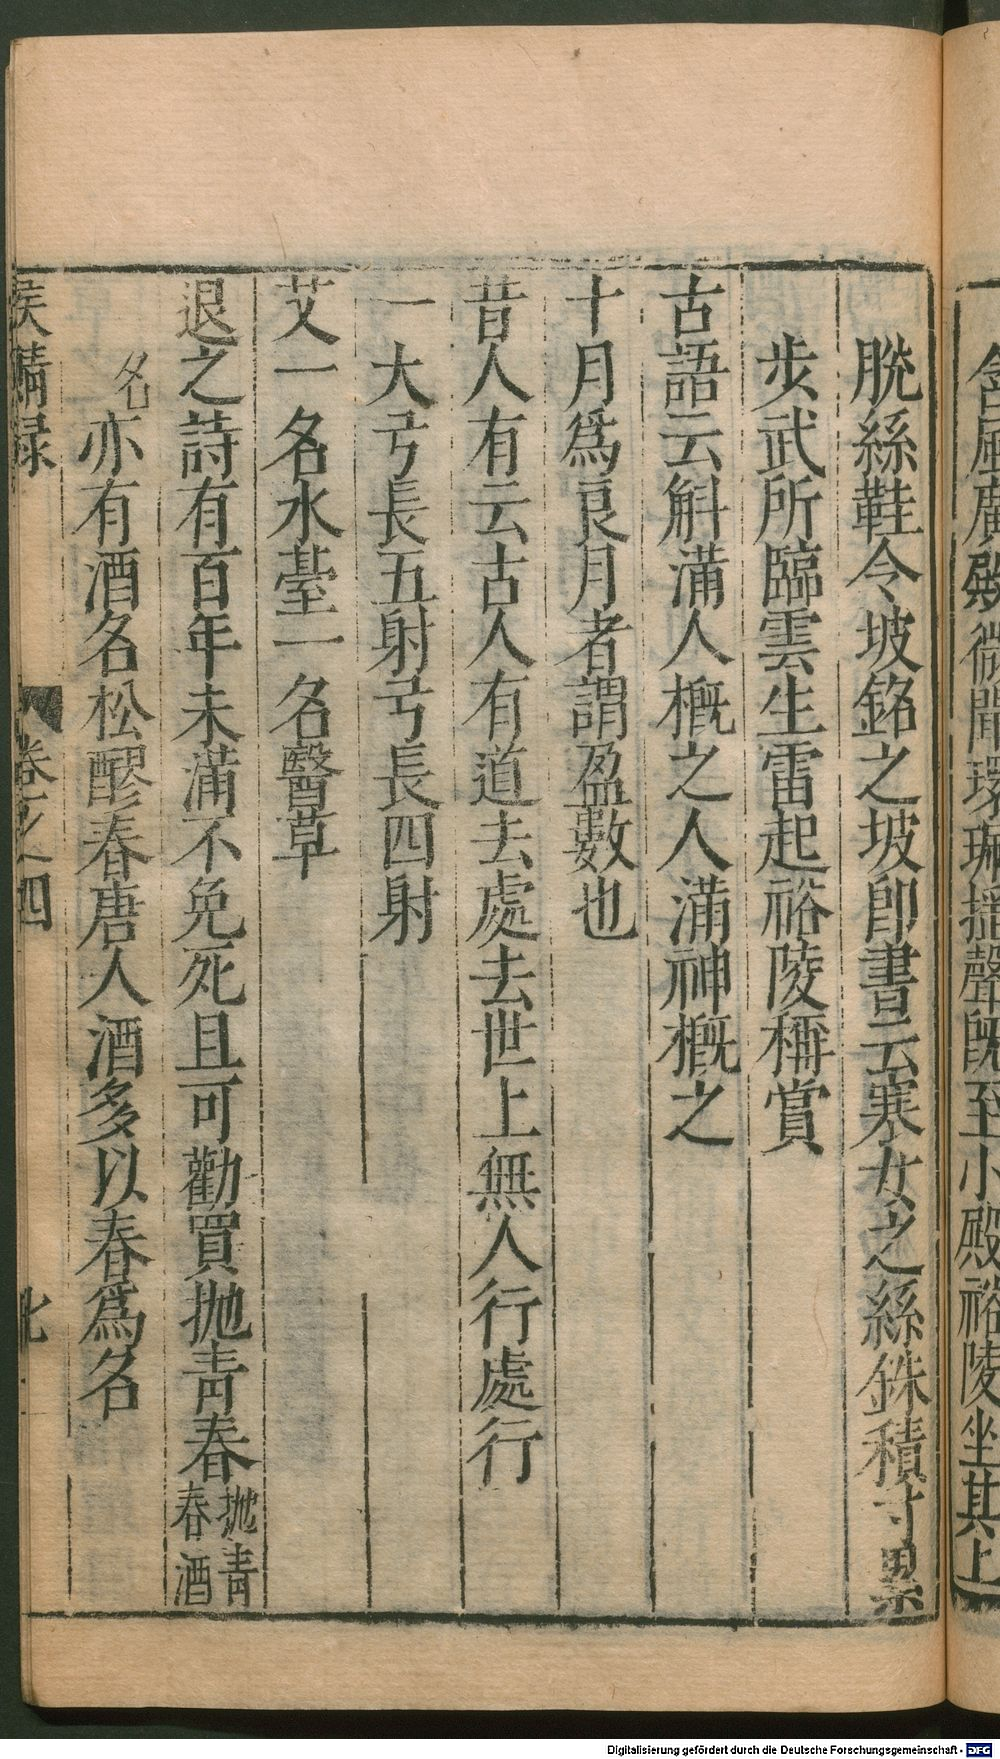 含風廣殿微聞環珮搖聲旣至小殿裕陵坐其上
脫絲鞋令坡銘之坡卽書云寒女之絲銖積寸累
步武所臨雲生雷起裕陵稱賞
古語云斛滿人概之人滿神概之
十月爲良月者謂盈數也
昔人有云古人有道去處去世上無人行處行
一大弓長五射弓長四射
艾一名水臺一名醫草
退之詩有百年未滿不免死且可勸買抛青春抛青春酒
名亦有酒名松醪春唐人酒多以春爲名
侯鯖録 卷之四
Digitalisierung gefördert durch die Deutsche Forschungsgemeinschaft - DFG